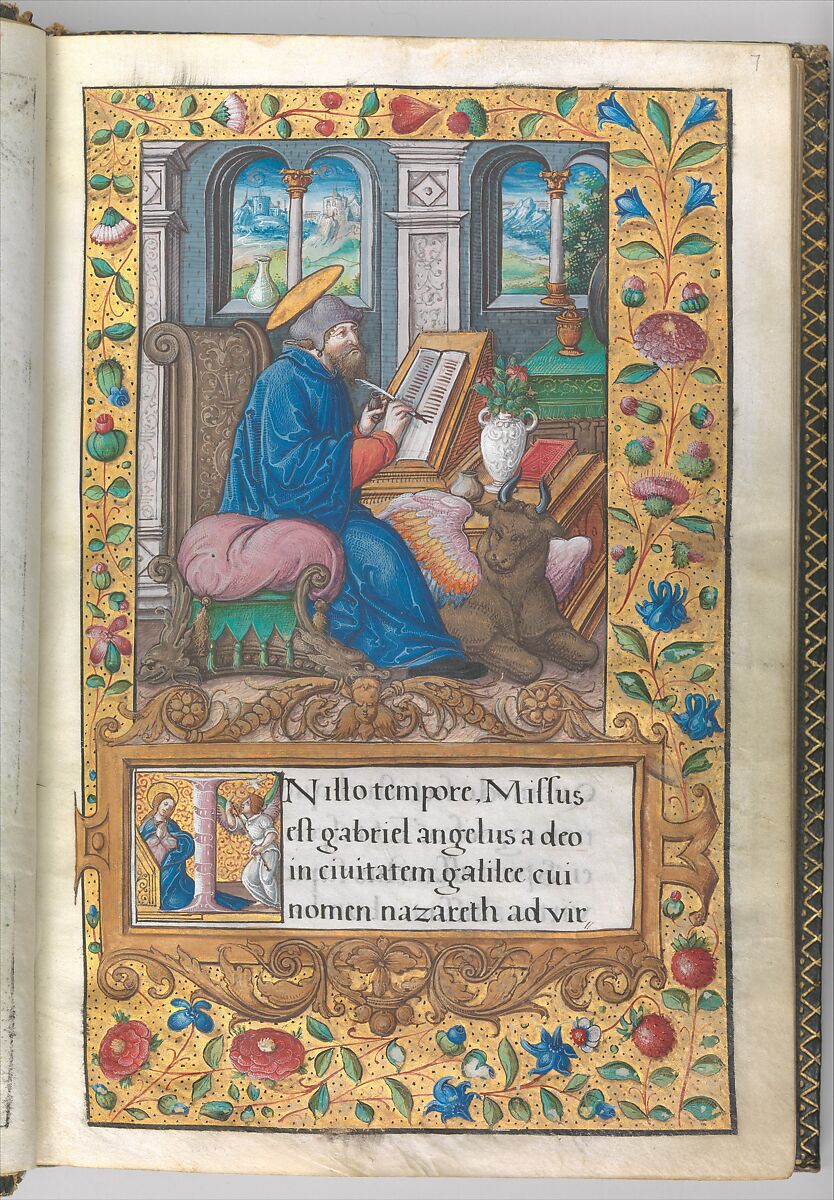 7
IN illo tempore, Missus
est gabriel angelus a deo
in ciuitatem galilee cui
nomen nazareth ad vir